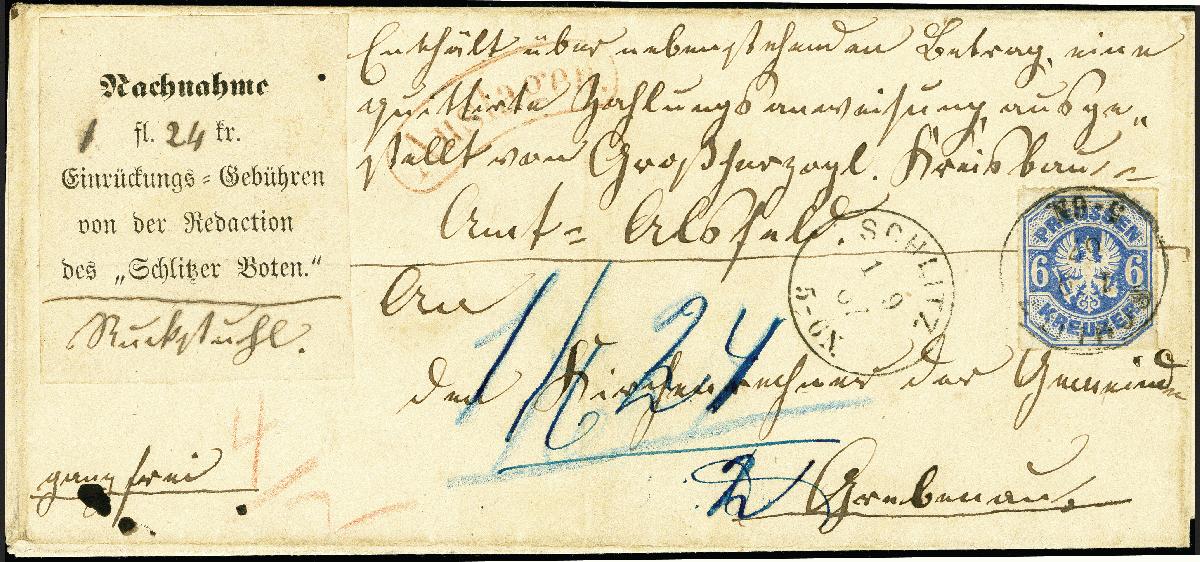 Nachnahme
1 fl. 24 kr.
Einrückungs=Gebühren
von der Redaction
des „Schlitzer Boten."
Ruckstuhl.
ganz frei
4
Enthält über nebenstehenden Betrag, eine
quittirte Zahlungsanweisung, ausge„
stellt von Großherzogl. Kreisbau=
Amt= Alsfeld.
Auslagen.
An
den Kirchenrechner der Gemeinde
Grebenau.
1/24
2
SCHLITZ
1 9
5-6N.
PREUSSEN
6 6
KREUZER
5-6N